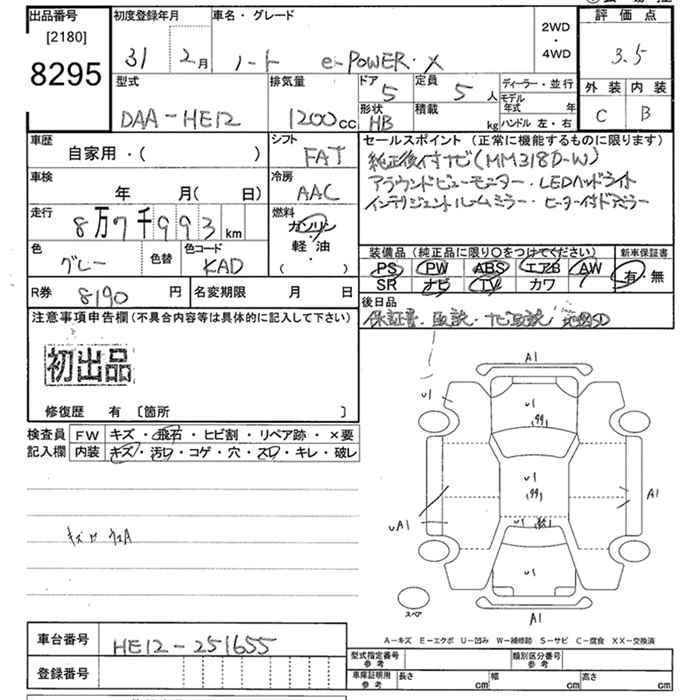 出品番号
[2180]
8295
初度登録年月
31 2月
車名・グレード
ノート e-POWER・X
2WD
・
4WD
評価点
3.5
外装 内装
C B
型式
DAA-HE12
排気量
1200cc
ドア
5
定員
5人
形状
HB
積載
kg
ディーラー・並行
モデル年式 年
ハンドル 左・右
車歴
自家用・( )
シフト
FAT
車検
年 月( 日)
冷房
AAC
走行
8万7千993km
燃料
ガソリン
軽・油
( )
色
グレー
色替
色コード
KAD
R券
8190円
名変期限 月 日
セールスポイント (正常に機能するものに限ります)
純正後付ナビ(MM318D-W)
アラウンドビューモニター・LEDヘッドライト
インテリジェントルームミラー・ヒーター付ドアミラー
装備品 (純正品に限り〇をつけてください)
新車保証書
PS PW ABS エアB AW
SR ナビ TV カワ
有・無
後日品
保証書・取説・ナビ取説
注意事項申告欄(不具合内容等は具体的に記入して下さい)
初出品
修復歴 有 [箇所 ]
検査員記入欄
FW キズ・飛石・ヒビ割・リペア跡・×要
内装 キズ・汚れ・コゲ・穴・スレ・キレ・破レ
A1
U1
U1
U1
A1
UA1
U1
U1
A1
スペア
A-キズ E-エクボ U-凹み W-補修跡 S-サビ C-腐食 XX-交換済
車台番号
HE12-251655
登録番号
型式指定番号
参考
類別区分番号
参考
車庫証明用
参考
長さ cm
幅 cm
高さ cm